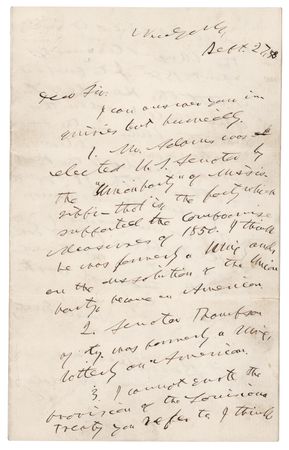 Sept. 27
Dear Sir:
I can answer your in
quiries but briefly.
1. Mr. Adams was
elected U.S. Senator by
the "Union party" of Missis
sippi - that is the party which
supported the Compromise
Measures of 1850. I think
he was formerly a Whig and,
on the dissolution of the Union
party, became an American
2. Senator Thompson
of Ky. was formerly a Whig,
latterly an American.
3. I cannot quote the
provision of the Louisiana
treaty you refer to. I think